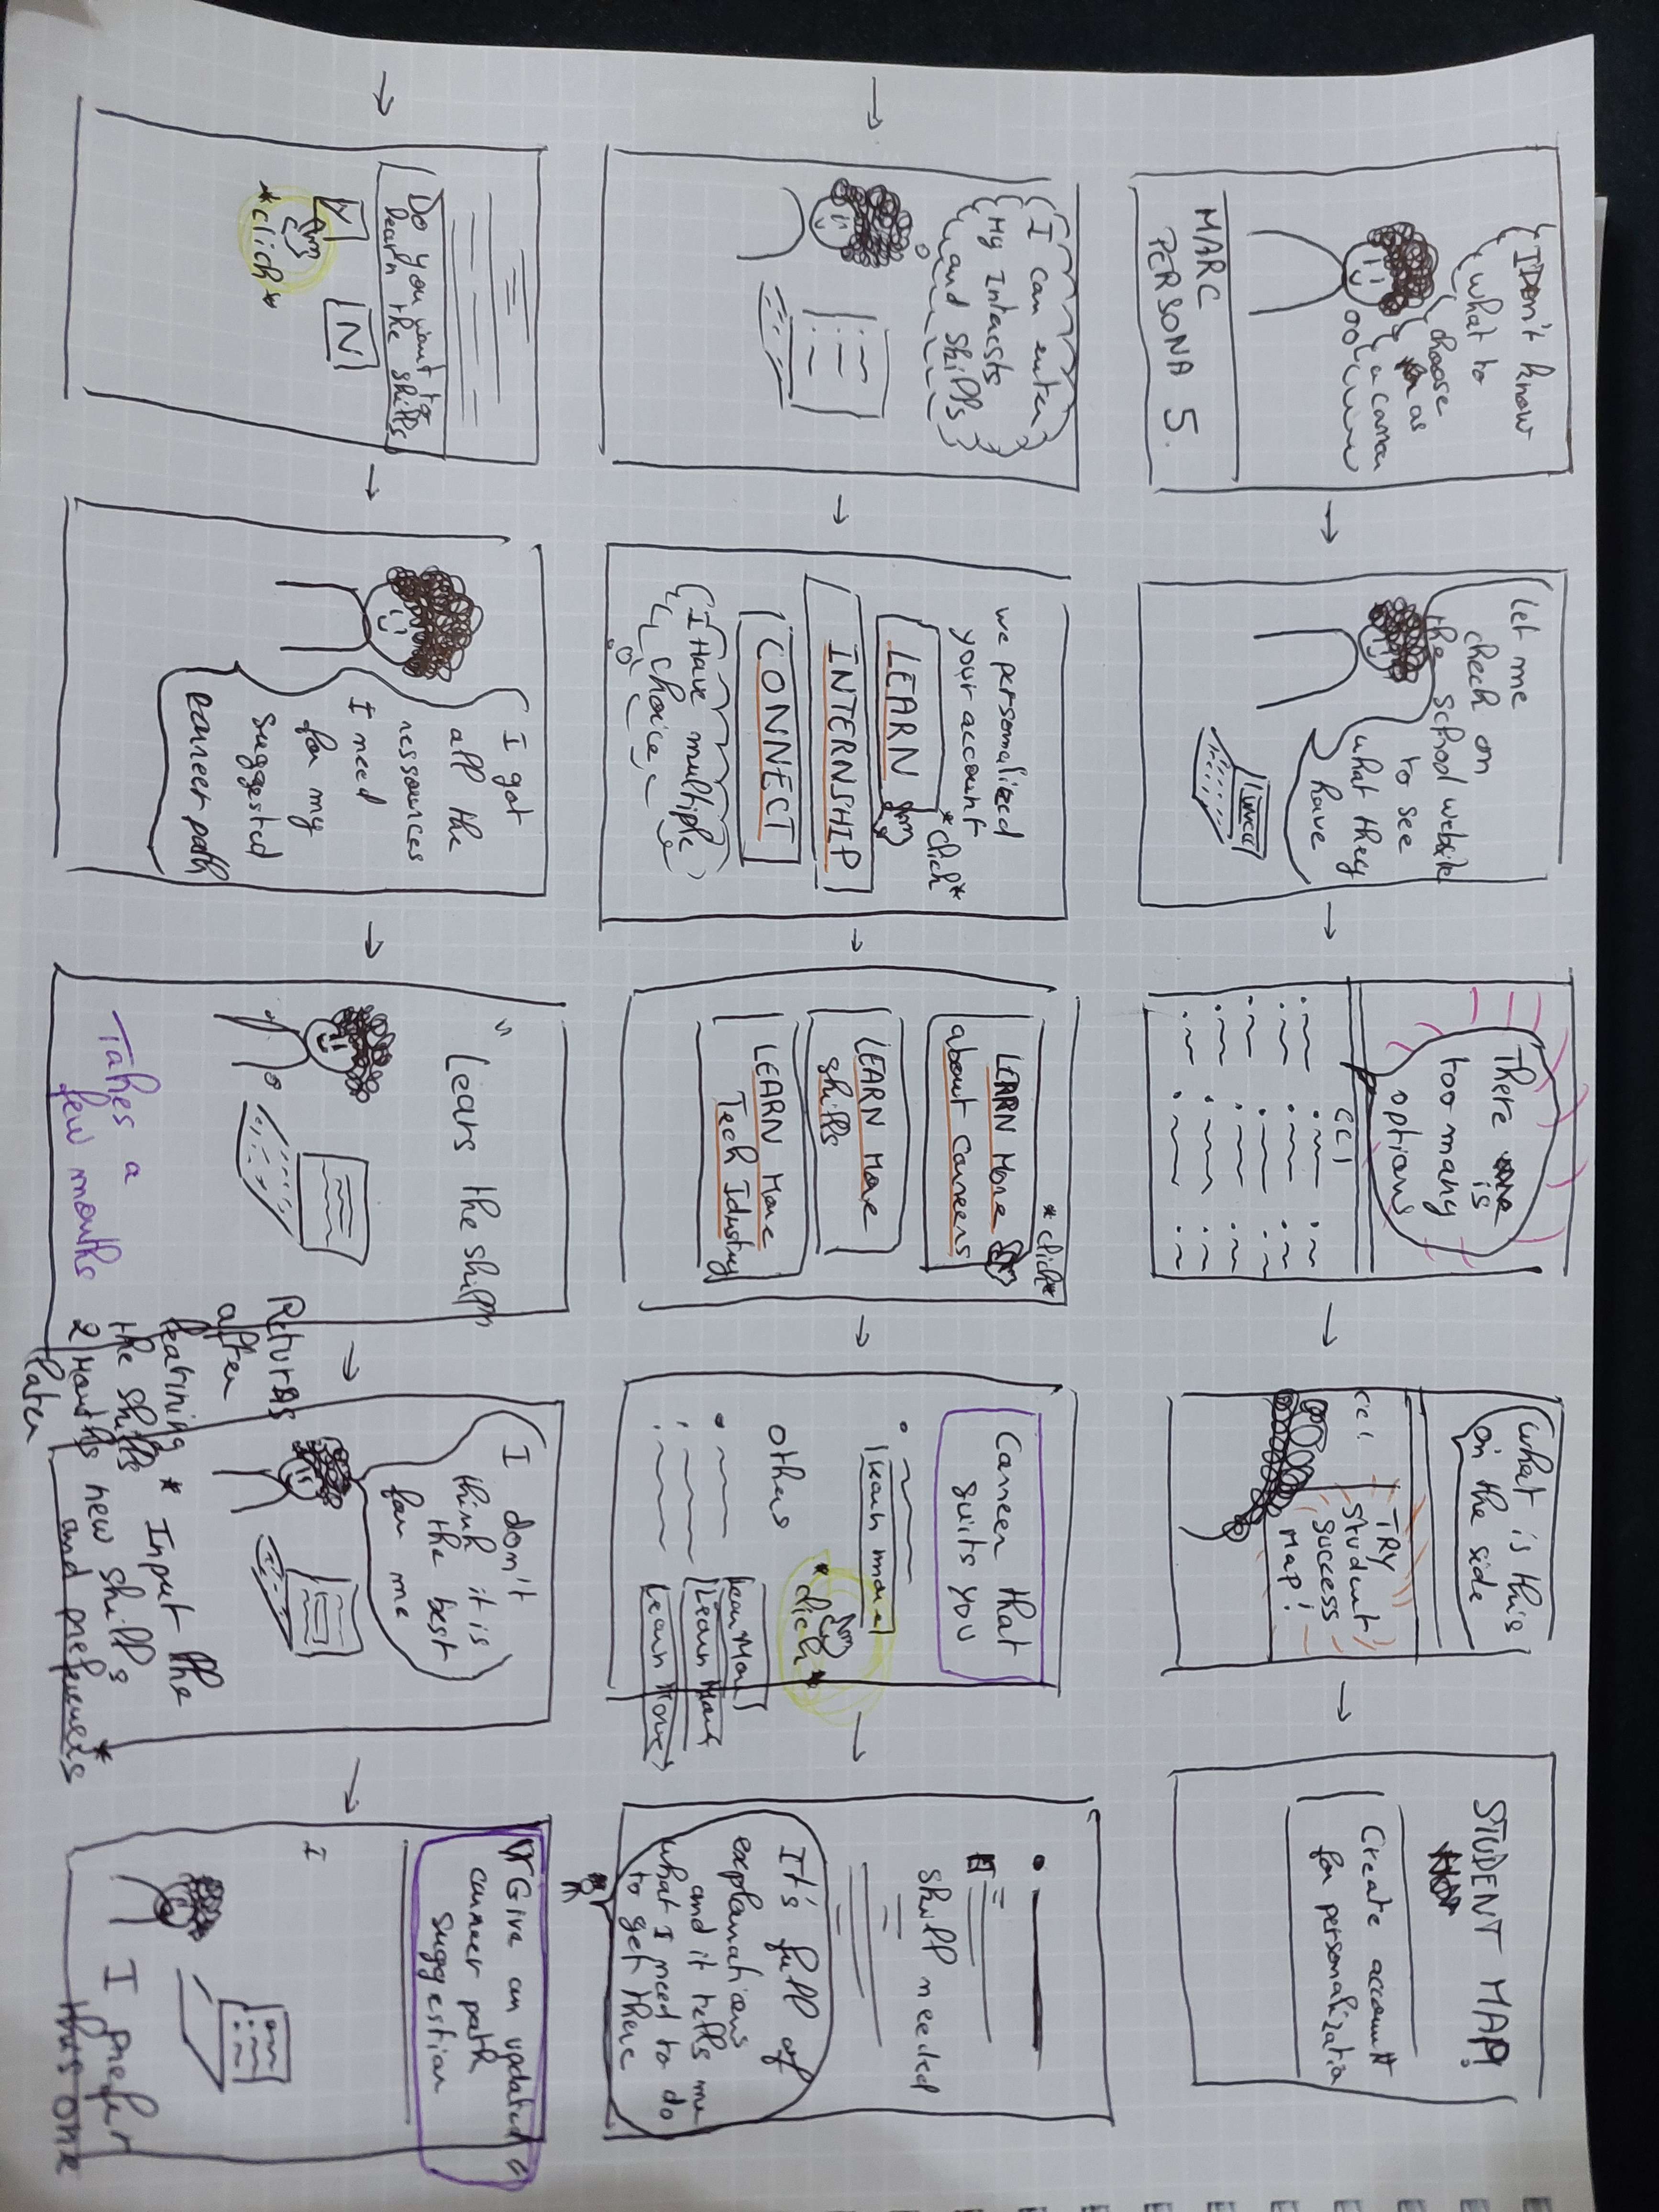 I Don't know
what to
choose
as
a career
MARC
PERSONA 5.
Let me
check on
the school website
to see
what they
have
There is
too many
options
CCI
What is this
on the side
CCI
TRY
student
success
map!
STUDENT MAP!
Create account
for personalizatio
I can enter
My Interests
and skills
we personalized
your account
*click*
LEARN
INTERNSHIP
CONNECT
I Have multiple
choice
*click*
LEARN More
about careers
LEARN More
skills
LEARN More
Tech Idustry
Career that
suits you
learn more
*click*
others
Learn More
Learn More
Learn More
skill needed
It's full of
explanations
and it tells me
what I need to do
to get there
Do you want to
learn the skills
Y
N
*click*
I got
all the
ressources
I need
for my
suggested
career path
"Lears the skills
Takes a
few months
Returns
after
learining
the skills
2 Months
later
I don't
think it is
the best
for me
* Input the
new skills
and preferences *
"Give an updated
career path
suggestion"
I
I prefer
this one